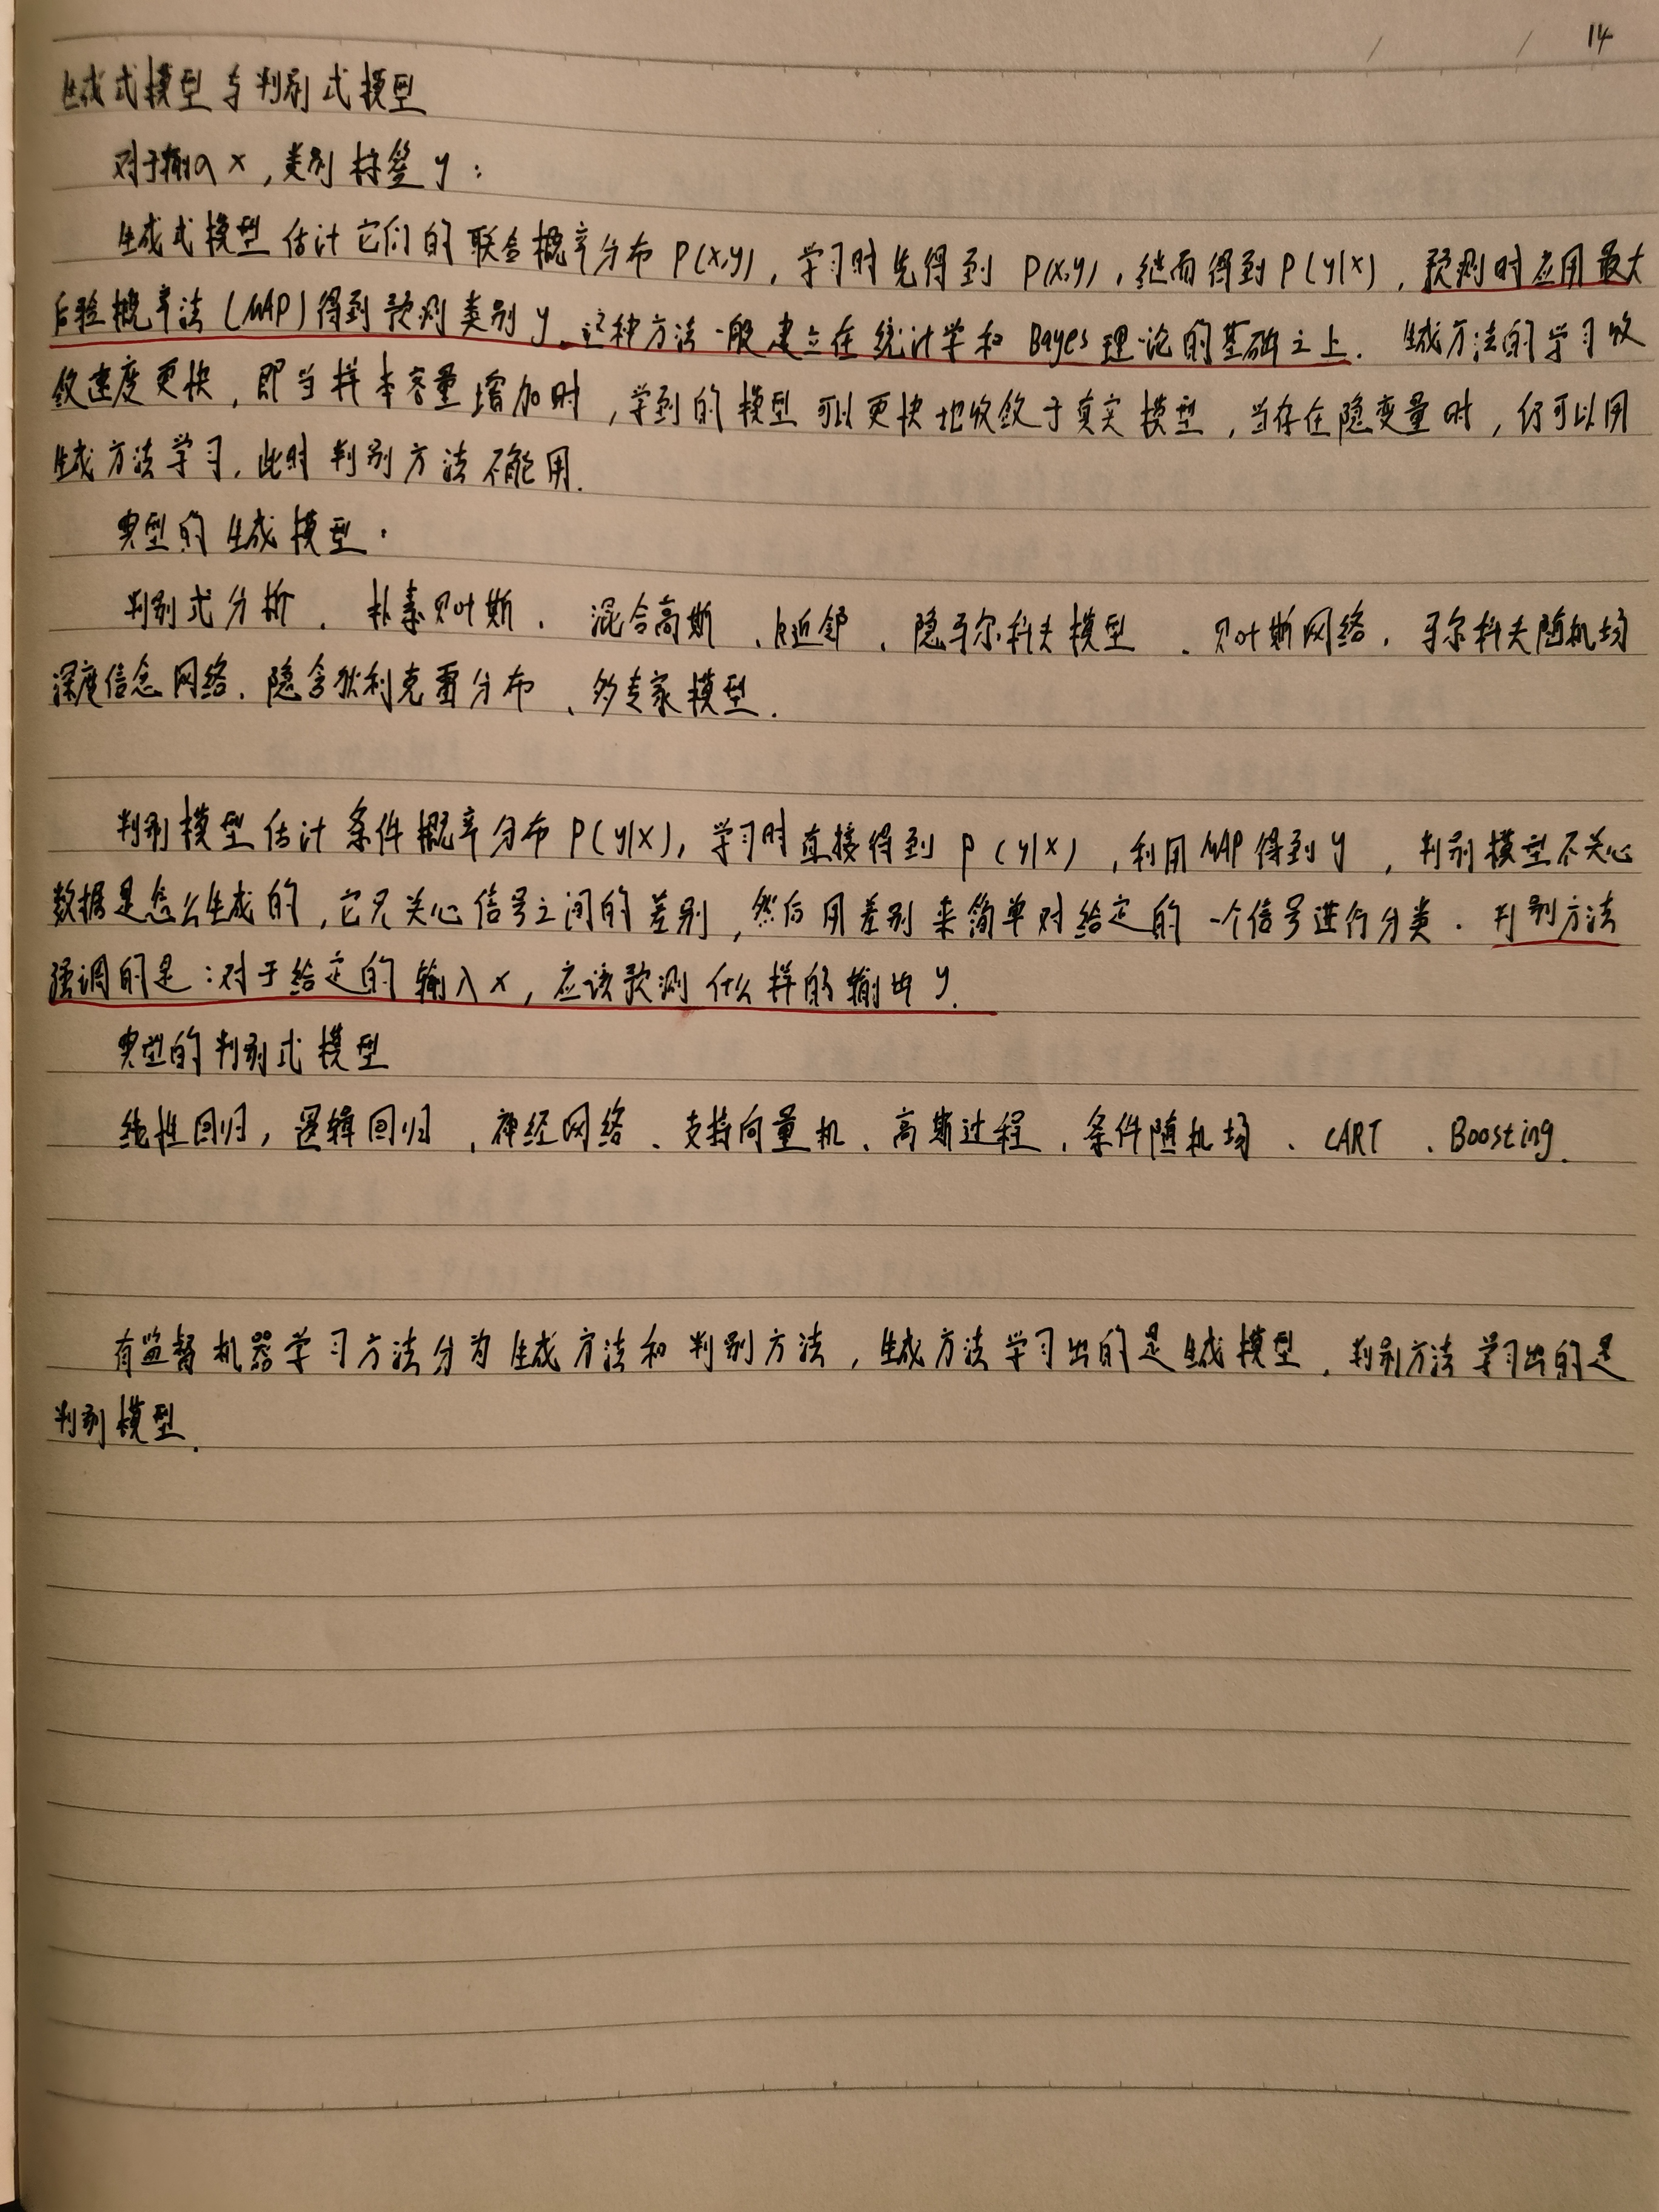 14
生成式模型与判别式模型
对于输入x,类别标签y:
生成式模型估计它们的联合概率分布P(x,y),学习时先得到P(x,y),继而得到P(y|x),预测时应用最大
后验概率法(MAP)得到预测类别y.这种方法一般建立在统计学和Bayes理论的基础之上.生成方法的学习收
敛速度更快,即当样本容量增加时,学到的模型可以更快地收敛于真实模型,当存在隐变量时,仍可以用
生成方法学习,此时判别方法不能用.
典型的生成模型.
判别式分析、朴素贝叶斯、混合高斯、k近邻、隐马尔科夫模型、贝叶斯网络、马尔科夫随机场
深度信念网络、隐含狄利克雷分布、多专家模型.
判别模型估计条件概率分布P(y|x),学习时直接得到P(y|x),利用MAP得到y,判别模型不关心
数据是怎么生成的,它只关心信号之间的差别,然后用差别来简单对给定的一个信号进行分类.判别方法
强调的是:对于给定的输入x,应该预测什么样的输出y.
典型的判别式模型
线性回归,逻辑回归,神经网络、支持向量机、高斯过程、条件随机场、CART、Boosting.
有监督机器学习方法分为生成方法和判别方法,生成方法学习出的是生成模型,判别方法学习出的是
判别模型.